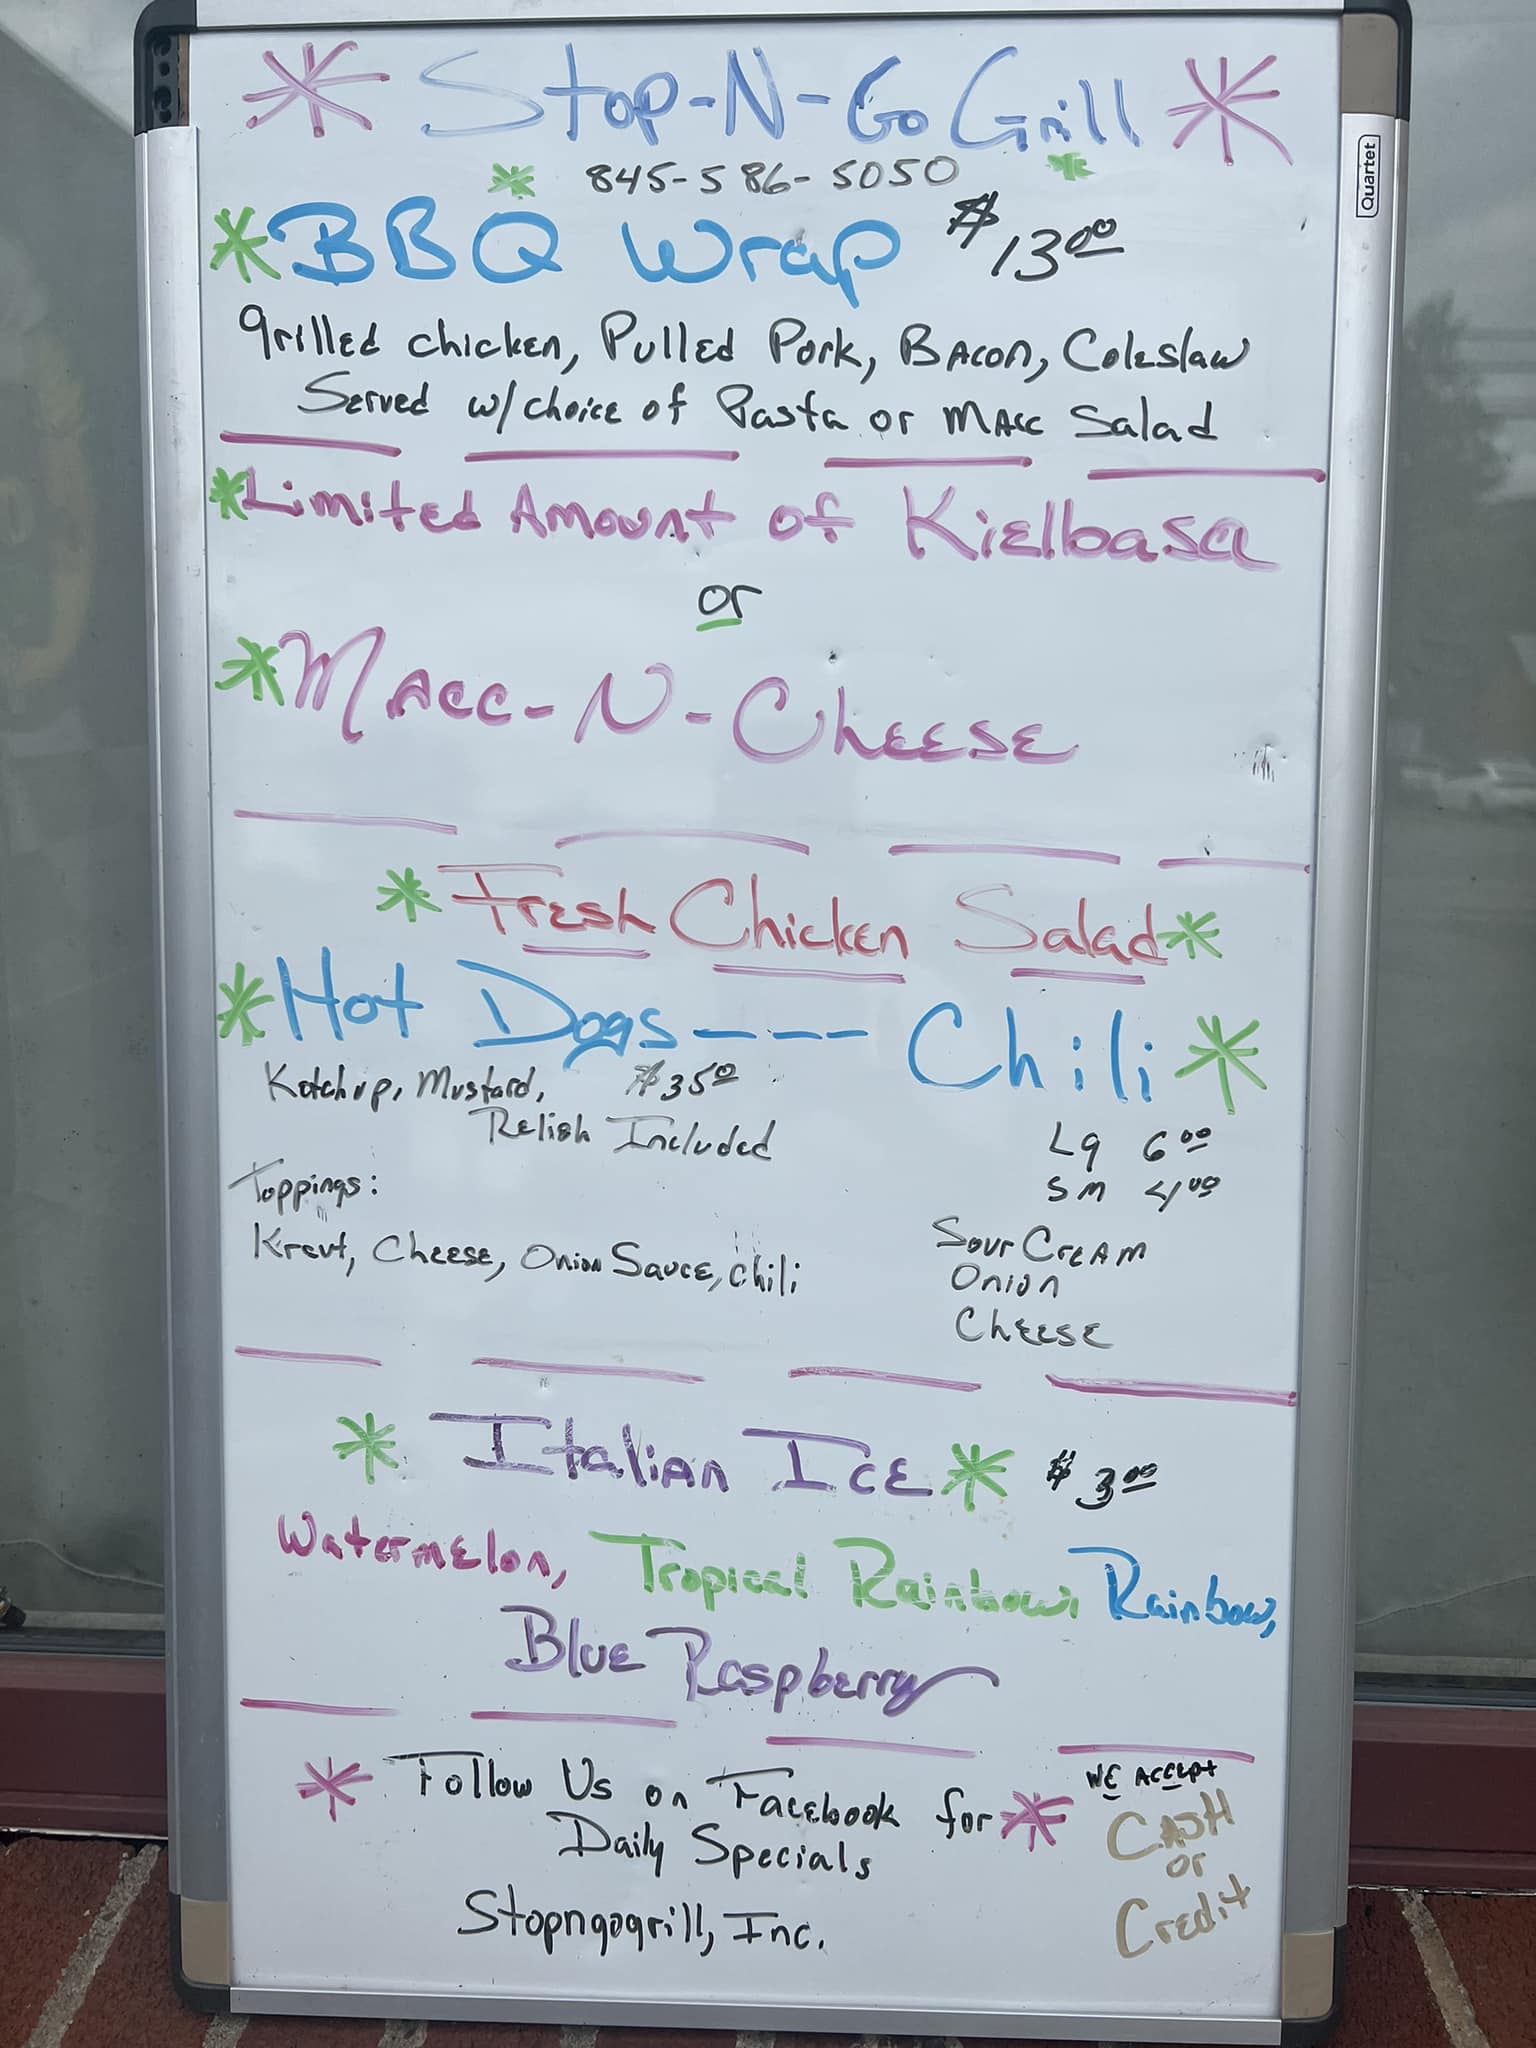 Stop-N-Go Grill
845-586-5050
BBQ Wrap $13.00
grilled chicken, Pulled Pork, Bacon, Coleslaw
Served w/choice of Pasta or Macc Salad
Limited Amount of Kielbasa
or
Macc-N-Cheese
Fresh Chicken Salad
Hot Dogs --- Chili
Ketchup, Mustard, $3.50
Relish Included
Lg 6.00
Sm 4.00
Toppings:
Kraut, Cheese, Onion Sauce, Chili
Sour Cream
Onion
Cheese
Italian Ice $3.00
Watermelon, Tropical Rainbow, Rainbow,
Blue Raspberry
Follow Us on Facebook for
Daily Specials
Stopngogrill, Inc.
We Accept
Cash
or
Credit
Quartet